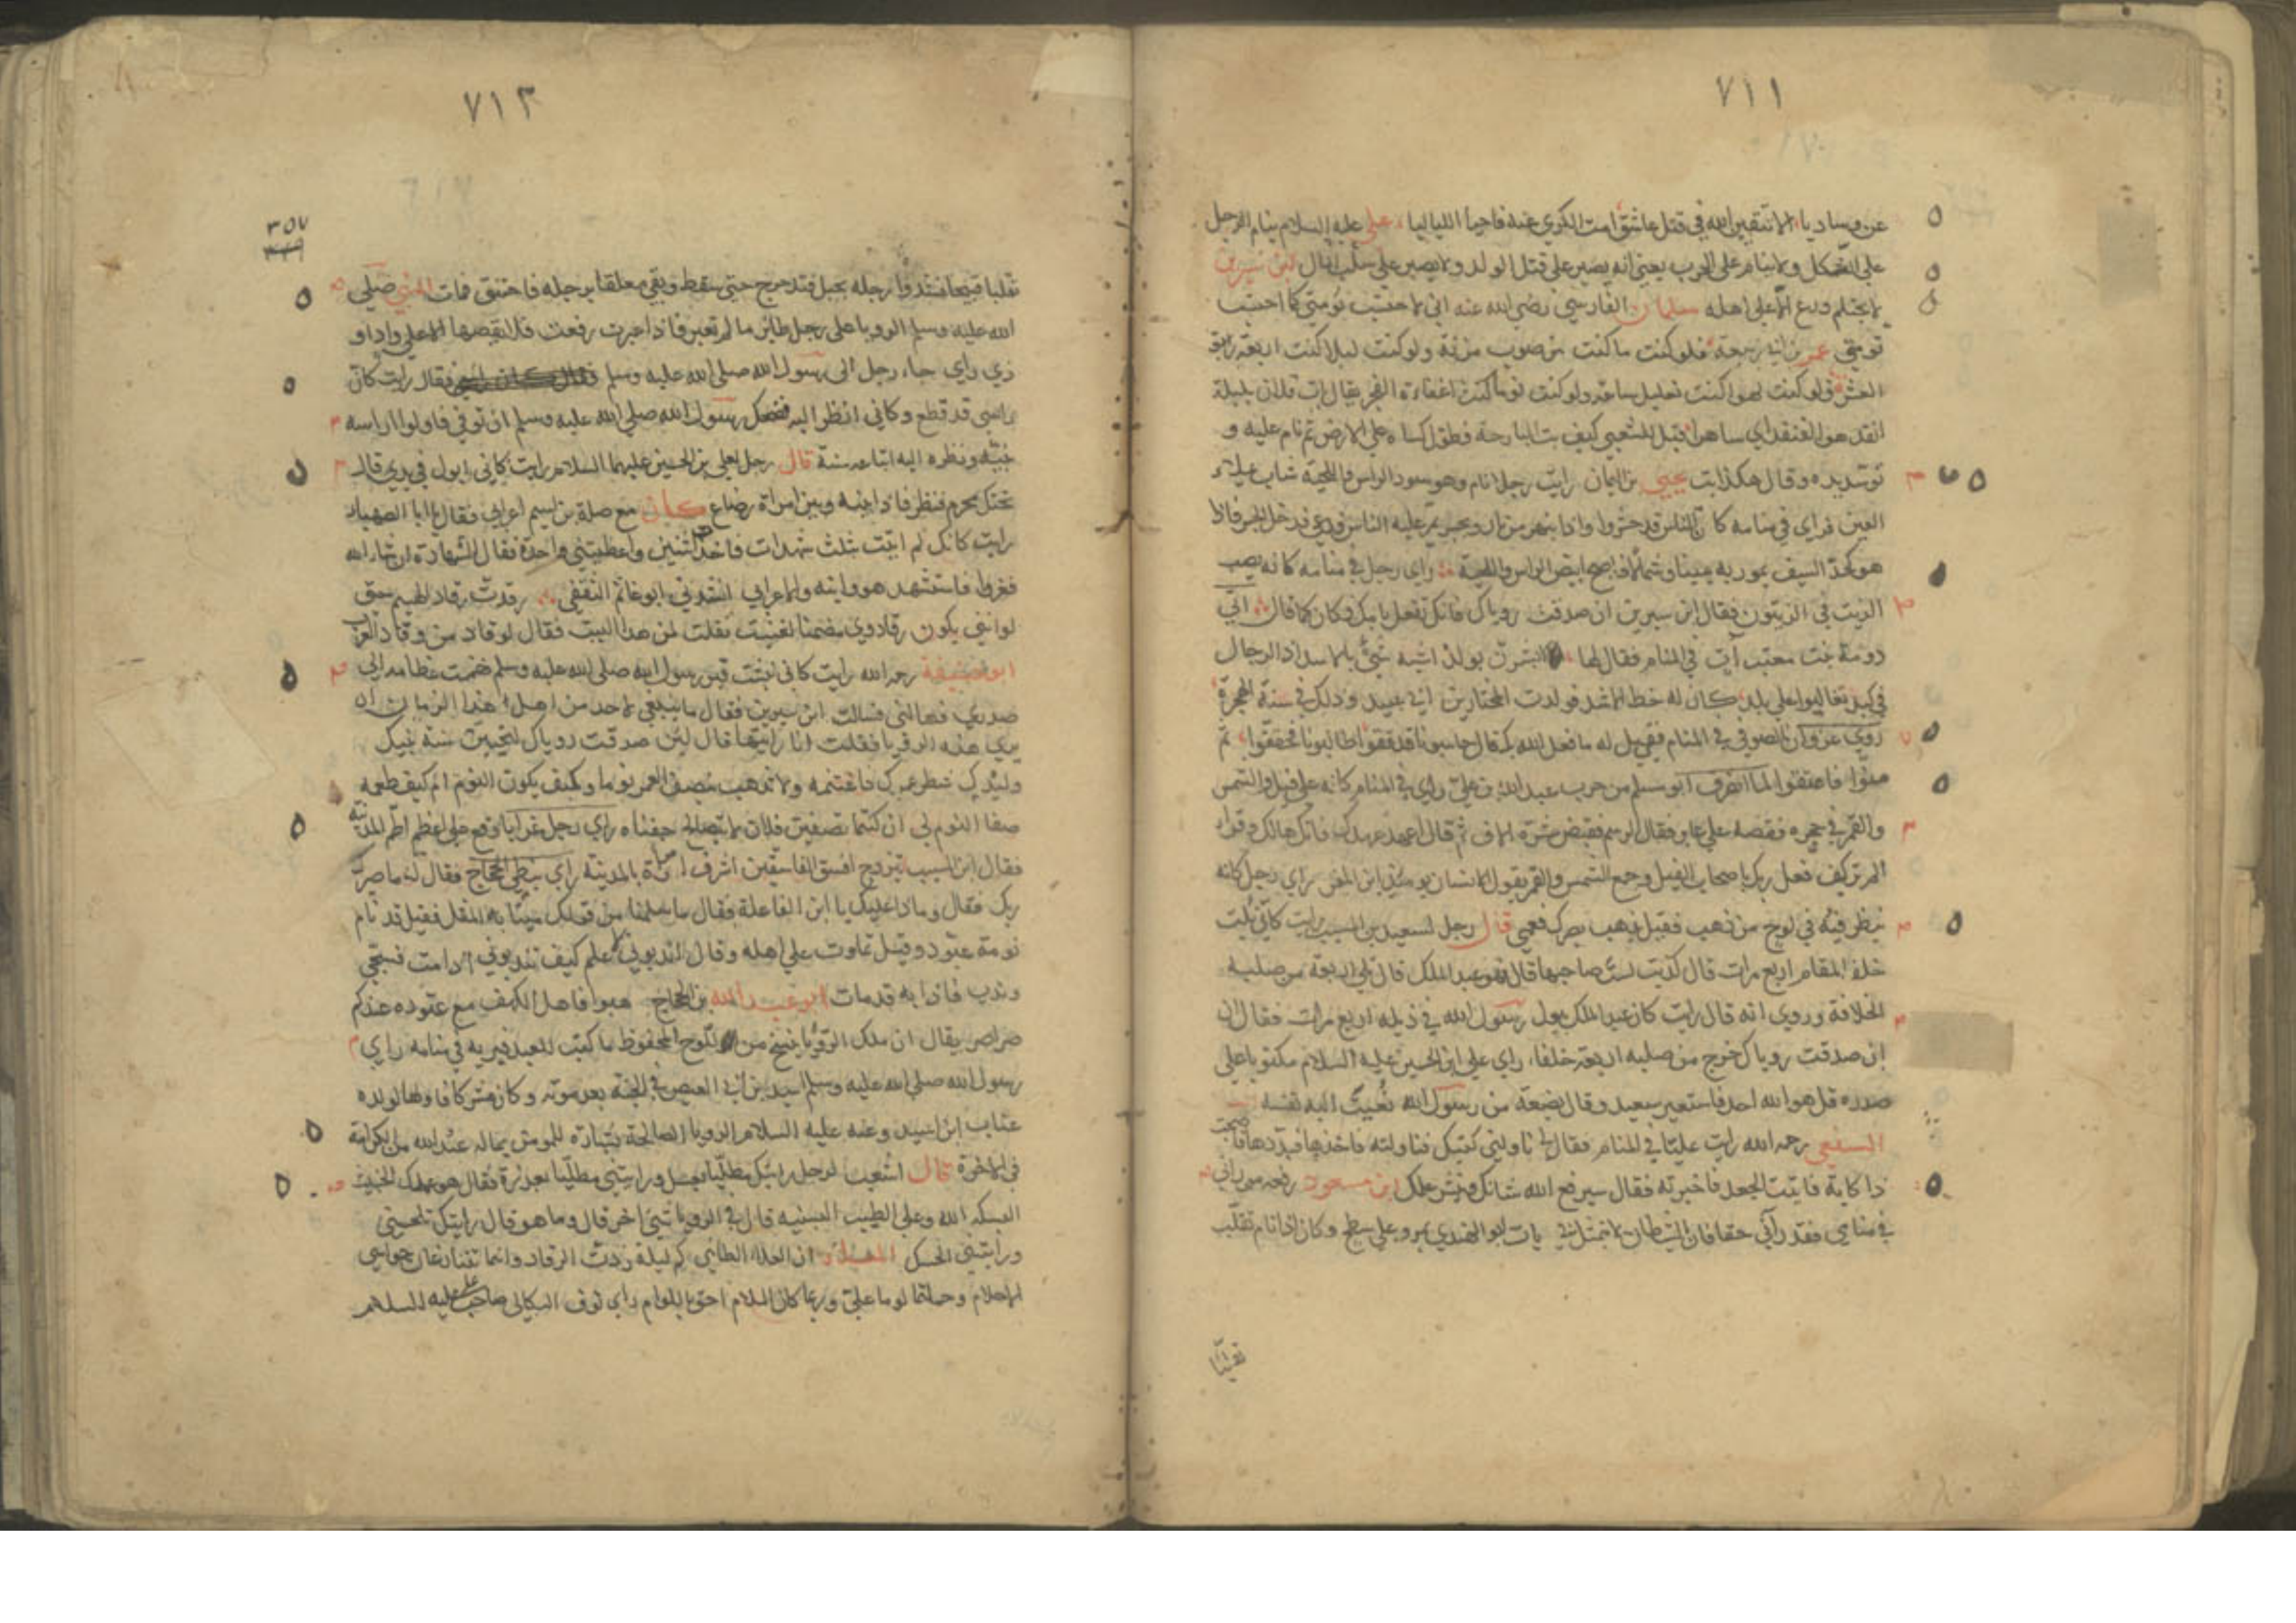 ٧١١
عن وساد يا الا تتقين الله في قتل عاشق امت الكري عنه فاحيا اللياليا علي عليه السلام ينام الرجل
علي الثكل ولا ينام علي الحرب يعني انه يصبر علي قتل الولد ولا يصبر علي سلب المال ابن سيرين
لا يحتلم ورع الا علي اهله سلمان الفارسي رضي الله عنه اني لاحتسب نومتي كما احتسب
قومتي عمر بن ابي ربيعة فلو كنت ماء كنت من صوب مزنة ولو كنت ليلا كنت
ولو كنت لهوا كنت تعليل ساعة ولو كنت نوما كنت اغفاءة الفجر يقال بات فلان بليلة
انقد هو القنفذ اي ساهرا قيل للشعبي كيف بت البارحة فطوي كساه علي الارض ثم نام عليه و
توسد يده وقال هكذا بت يحيي بن اليمان رايت رجلا نام وهو اسود الراس واللحية شاب يملاء
العين فراي في منامه كان الناس قد حشروا واذا بنهر من نار وجسر يمر عليه الناس فدعي فدخل الجسر فاذا
هو كحد السيف يمور به يمينا وشمالا فاصبح ابيض الراس واللحية راي رجل في منامه كانه يصب
الزيت في الزيتون فقال ابن سيرين ان صدقت روياك فانك تفعل بامك وكان كما قال
دومة بنت معتب ات في المنام فقال لها ابشرن بولد اشبه شيء بالاسد اذا الرجال
في كبد تغالبوا علي بلد كان له حظ الاشد فولدت المختار بن ابي عبيد وذلك في سنة الهجرة
الصوفي في المنام فقيل له ما فعل الله بك قال حاسبونا فدققوا طالبونا فحققوا ثم
منوا فاعتقوا لما انصرف ابو مسلم من حرب عبد الله بن علي راي في المنام كانه علي فيل والشمس
والقمر في حجره فقصه علي عابر فقال الرسم فقبض عشرة الاف ثم قال اعهد عهدك فانك هالك وقرا
الم تر كيف فعل ربك باصحاب الفيل وجمع الشمس والقمر يقول الانسان يومئذ اين المفر راي رجل كانه
ينظر فيه في لوح من ذهب فقيل يذهب بصرك فعمي قال رجل لسعيد بن المسيب رايت كاني بلت
خلف المقام اربع مرات قال كذبت لست صاحبها قال فهو عبد الملك قال يلي اربعة من صلبه
الخلافة وروي انه قال رايت كان عبد الملك يبول رسول الله في اربع مرات فقال
ان صدقت روياك خرج من صلبه اربعة خلفاء راي علي ابن الحسين عليه السلام مكتوبا علي
صدره قل هو الله احد فاستعبر سعيد وقال بضعة من رسول الله نعيت اليه نفسه
رحمه الله رايت عليا في المنام فقال لي ناولني كتبك فناولته فاخذها فبددها فاصبحت
ذا كابة فاتيت الجعد فاخبرته فقال سيرفع الله شانك وينشر علمك ابن مسعود رفعه من راني
في منامي فقد رآني حقا فان الشيطان لا يتمثل بي بات ابو الهندي بمرو علي سطح وكان اذا نام تقلب
تقلبا
٧١٣
٣٥٧
تقلبا قبيحا فشدوا رجله بحبل فتدحرج حتي سقط وبقي معلقا برجله فاختنق فمات النبي صلي
الله عليه وسلم الرويا علي رجل طاير ما لم تعبر فاذا عبرت رفعت فلا تقصها الا علي واد او
ذي راي جاء رجل الي رسول الله صلي الله عليه وسلم فقال رايت كان
راسي قد قطع وكاني انظر اليه فضحك رسول الله صلي الله عليه وسلم ان توفي فاولوا راسه
نبيه ونظره اليه اتباعه سنة قال رجل لعلي بن الحسين عليهما السلام رايت كاني ابول في يدي قال
تحتك محرم فنظر فاذا بينه وبين امراة رضاع كان مع صلة بن اشيم اعرابي فقال يا ابا الصهباء
رايت كانك اتيت بثلث شهدات فاخذت اثنين واعطيتني واحدة فقال الشهادة ان شاء الله
فغزوا فاستشهد هو وابنه والاعرابي انشدني ابو غانم الثقفي رقدت رقاد الهيم
لو انني يكون رقادي مغنما لغنيت فقلت لمن هذا البيت فقال لرقاد من رقاد العرب
ابو حنيفة رحمه الله رايت كاني نبشت قبر رسول الله صلي الله عليه وسلم فضممت عظامه الي
صدري فهالني فسالت ابن سيرين فقال ما ينبغي لاحد من اهل هذا الزمان ان
يري هذه الرويا فقلت انا رايتها قال لئن صدقت روياك لتحيين سنة نبيك
شطر عمرك فاغتنمه ولا تذهب بنصف العمر نوما وكيف يكون النوم ام كيف طعمه
صفا النوم لي ان كنتما تصفين فلان لا يتصالح جفناه راي رجل غرابا وقع علي اعظم اطم المدينة
فقال ابن المسيب يتزوج افسق الفاسقين اشرف امراة بالمدينة الحجاج فقال له ما صنع
ربك فقال وما ذا عليك يا ابن الفاعلة فقال ما سلمنا من قولك ميتا المثل فقيل قد نام
نومة عبود وقيل تماوت علي اهله وقال اندبوني لاعلم كيف تندبوني اذا مت فسجي
وندب فاذا به قد مات ابو عبد الله بن الحجاج هبوا فاهل الكهف مع عبوده عندكم
صراصر يقال ان ملك الرويا ينسخ من اللوح المحفوظ ما كتب للعبد فيريه في منامه راي
رسول الله صلي الله عليه وسلم اسيد بن ابي العيص في الجنة بعد موته وكان مشركا فاولها لولده
عتاب ابن اسيد وعنه عليه السلام الرويا الصالحة بشارة للمومن بماله عند الله من الكرامة
في الاخرة قال اشعب لرجل رايتك مطليا بعسل ورايتني مطليا بعذرة فقال هو عملك الخبيث
البسكه الله وعلي الطيب البسنيه قال في الرويا شيء اخر قال وما هو قال رايتك تلحسني
ورايتني الحسك ان العلاء الطائي كم ليلة ردت الرقاد وانما
الاحلام وربما كان الملام احق باللوام راي نوف البكالي صاحب علي عليه السلام